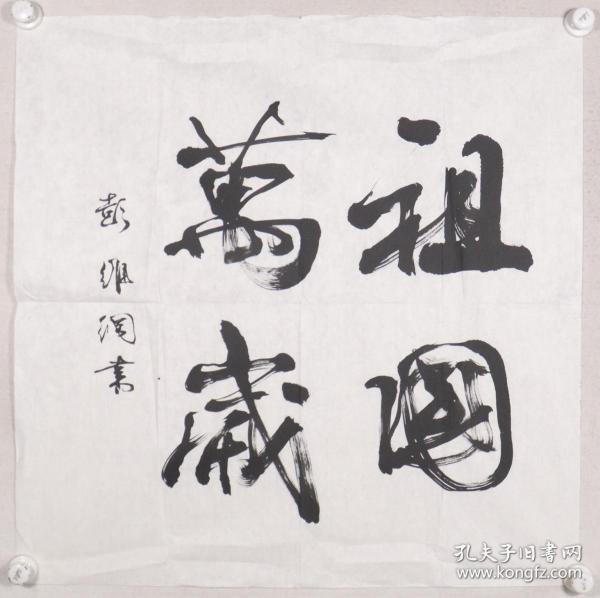 祖國
萬歲
彭維洞書
孔夫子旧书网
www.kongfz.com